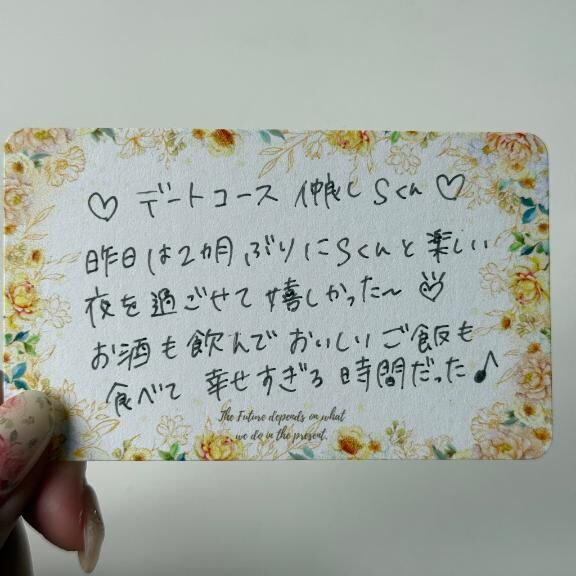 ♡ デートコース 仲良しSくん ♡
昨日は2ヵ月ぶりにSくんと楽しい
夜を過ごせて嬉しかった〜♡
お酒も飲んでおいしいご飯も
食べて 幸せすぎる時間だった♪
The Future depends on what
we do in the present.